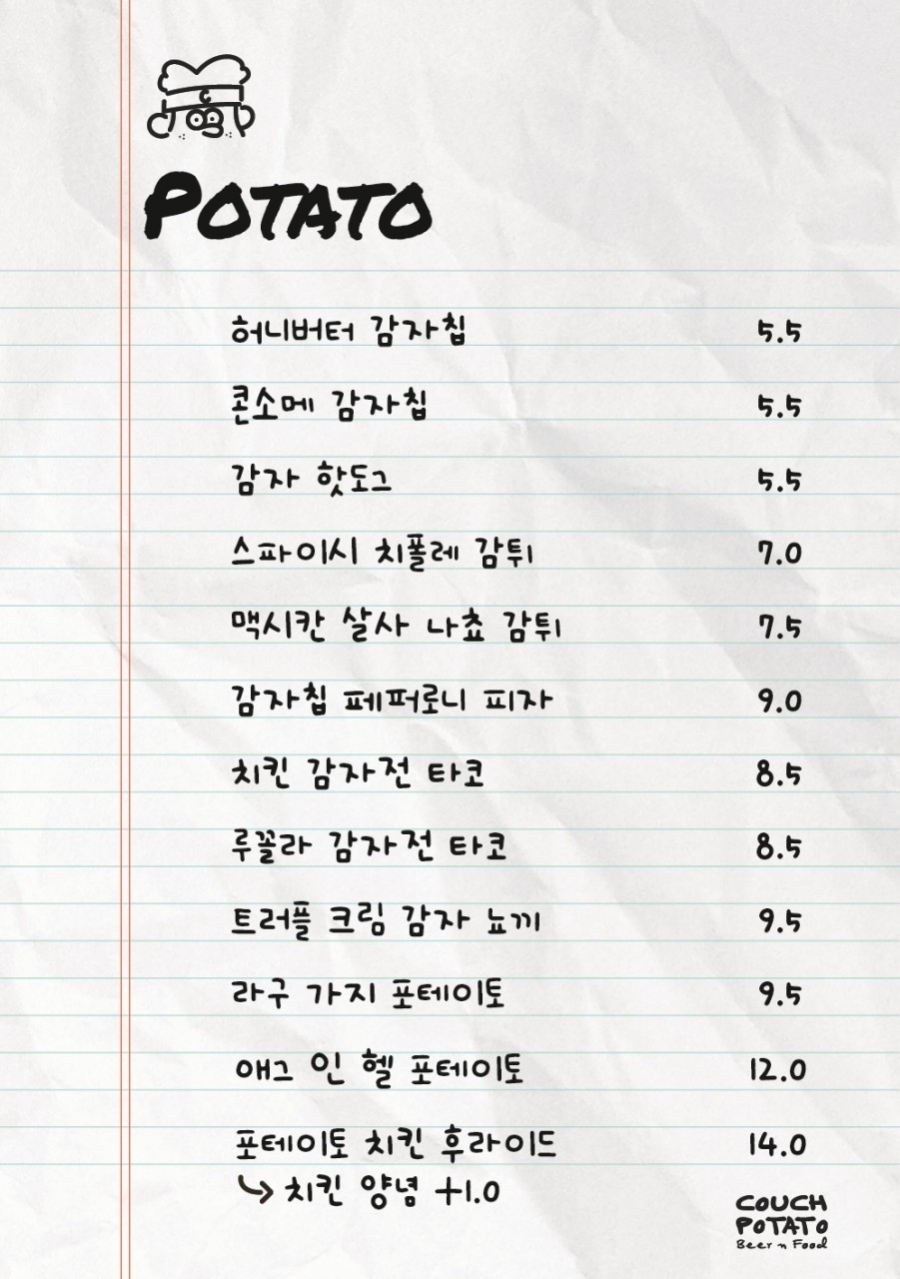 POTATO
허니버터 감자칩 5.5
콘소메 감자칩 5.5
감자 핫도그 5.5
스파이시 치폴레 감튀 7.0
맥시칸 살사 나쵸 감튀 7.5
감자칩 페퍼로니 피자 9.0
치킨 감자전 타코 8.5
루꼴라 감자전 타코 8.5
트러플 크림 감자 뇨끼 9.5
라구 가지 포테이토 9.5
애그 인 헬 포테이토 12.0
포테이토 치킨 후라이드 14.0
↳ 치킨 양념 +1.0
COUCH
POTATO
Beer n Food